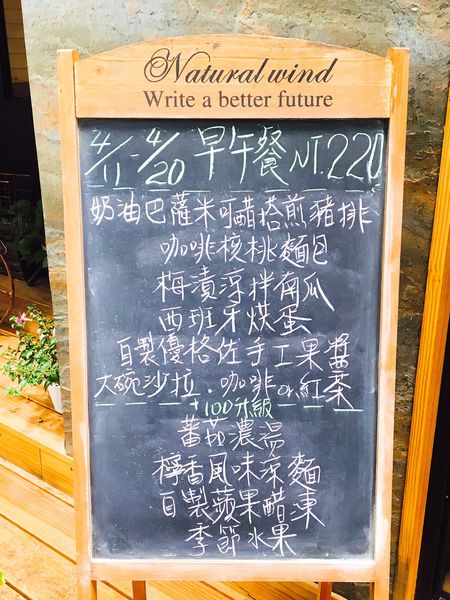 Natural wind
Write a better future
4/11-4/20 早午餐 NT.220
奶油巴薩米可醋搭煎豬排
咖啡核桃麵包
梅漬涼拌南瓜
西班牙烘蛋
自製優格佐手工果醬
大碗沙拉.咖啡or紅茶
+100升級
蕃茄濃湯
檸香風味涼麵
自製蘋果醋凍
季節水果